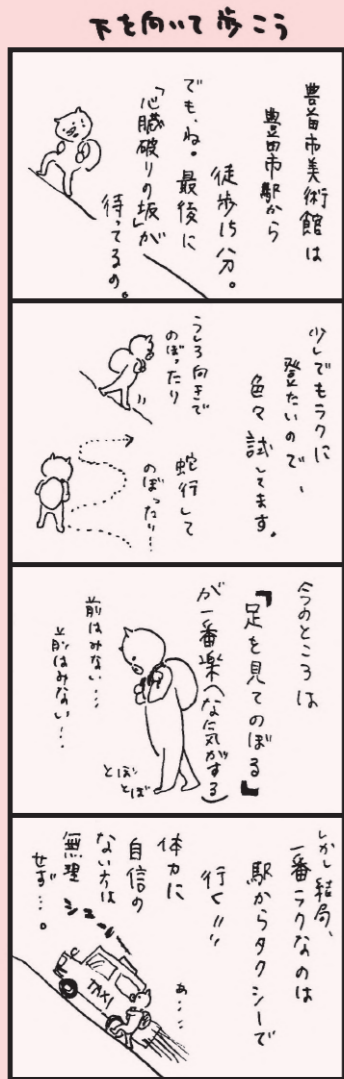 下を向いて歩こう
豊田市美術館は
豊田市駅から
徒歩15分。
でも、ね。最後に
「心臓破りの坂」が
待ってるの。
少しでもラクに
登たいので、
色々試してます。
うしろ向きで
のぼったり
蛇行して
のぼったり…
今のところは
『足を見てのぼる』
が一番楽(な気がする)
前はみない…
前はみない…
とぼ
とぼ
しかし結局、
一番ラクなのは
駅からタクシーで
行く!!
あ…
体力に
自信の
ない方は
無理
せず…。
TAXI